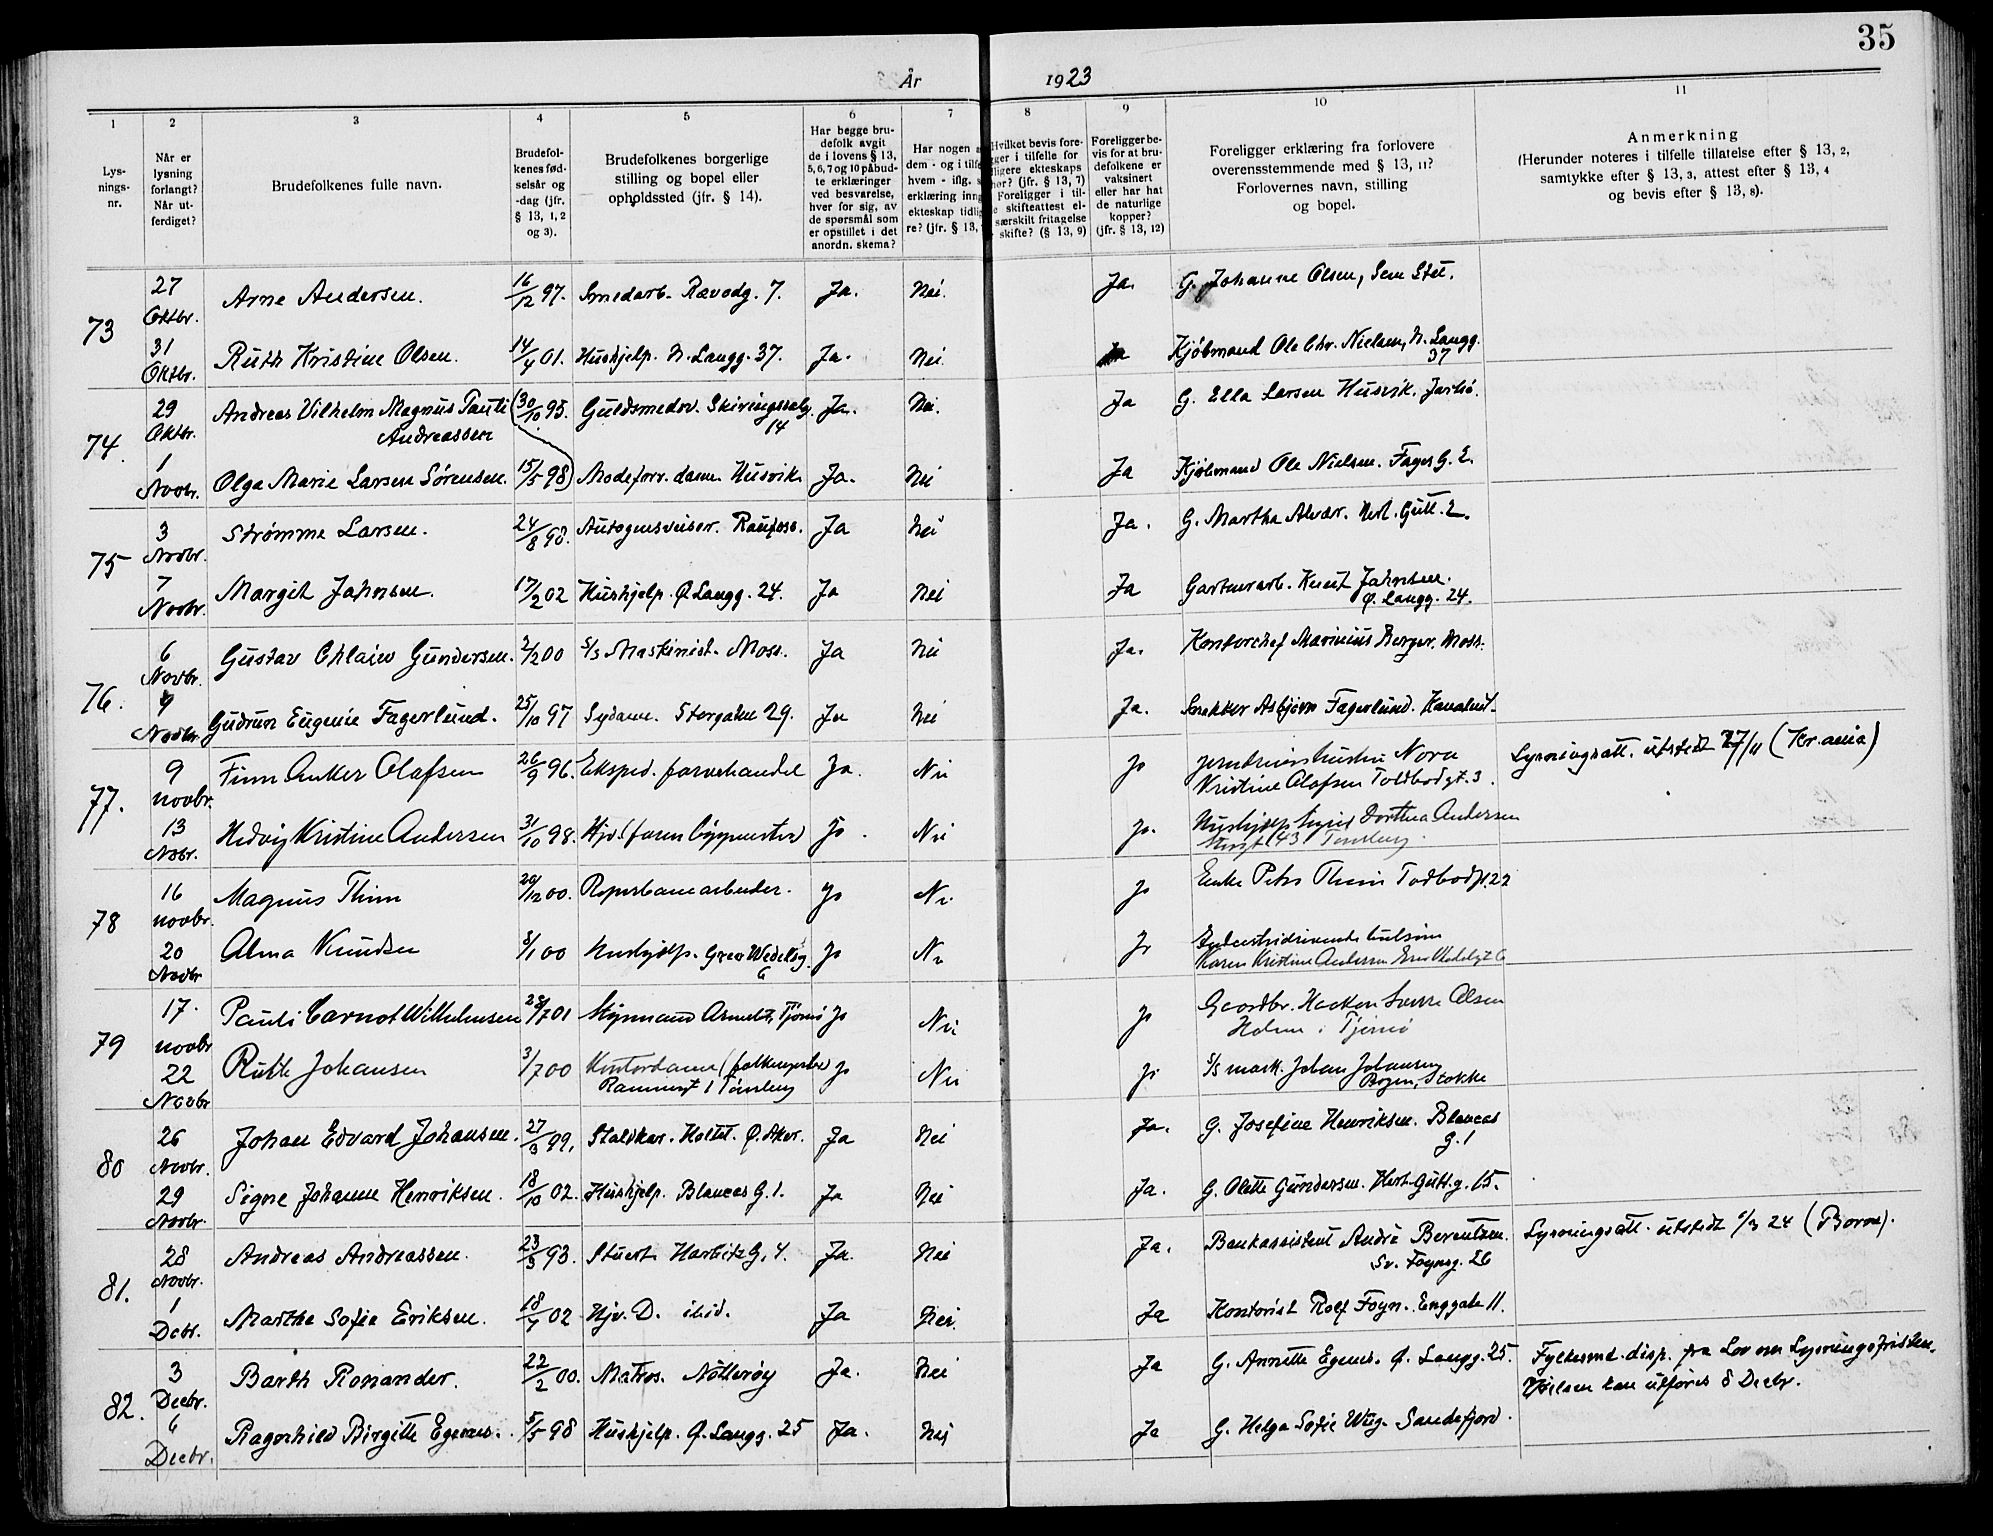 35
År 1923
1 2 3 4 5 6 7 8 9 10 11
Lys-
nings-
nr.
Når er
lysning
forlangt?
Når ut-
ferdiget?
Brudefolkenes fulle navn.
Brudefol-
kenes fød-
selsår og
-dag (jfr.
§ 13, 1, 2
og 3).
Brudefolkenes borgerlige
stilling og bopel eller
opholdssted (jfr. § 14).
Har begge bru-
defolk avgit
de i lovens § 13,
5, 6, 7 og 10 påbud-
te erklæringer
ved besvarelse,
hver for sig, av
de spørsmål som
er opstillet i det
anordn. skema?
Har nogen a
dem - og i tilfe
hvem - iflg. s
erklæring inng
ekteskap tidlig
re? (jfr. § 13,
Hvilket bevis fore-
gger i tilfelle for
dligere ekteskaps
hør? (jfr. § 13, 7)
Foreligger i til-
e skifteattest el-
særskilt fritagelse
skifte? (§ 13, 9)
Foreligger be-
vis for at bru-
defolkene er
vaksinert
eller har hat
de naturlige
kopper?
(jfr. § 13, 12)
Foreligger erklæring fra forlovere
overensstemmende med § 13, 11?
Forlovernes navn, stilling
og bopel.
Anmerkning
(Herunder noteres i tilfelle tillatelse efter § 13, 2,
samtykke efter § 13, 3, attest efter § 13, 4
og bevis efter § 13, 8).
73
27 Oktbr. Arne Andersen. 16/12 97. Smedarb. Rævodg. 7. Ja. Nei. Ja. G. Johanne Olsen, Sem Stat.
31 Oktbr. Ruth Kristine Olsen. 14/4 01. Hushjelp. N. Langg. 37. Ja. Nei. Ja Kjøbmand Ole Chr. Nielsen, N. Langg.
37
74.
29 Oktbr. Andreas Vilhelm Magnus Pauli 30/10 95. Guldsmedsv. Skiringssalg. Ja. Nei. Ja G. Ella Larsen Husvik. Jarlsø.
Andreassen 14
1 Novbr. Olga Marie Larsen Sørensen. 15/5 98 Modeforr. dame. Husvik Ja. Nei Ja Kjøbmand Ole Nielsen. Fages G. 2.
75
3 Novbr. Strømme Larsen. 24/8 98. Autogensveiser. Raufoss. Ja Nei Ja. G. Martha Alvær. Hert. Gutt. 2.
7 Novbr. Margit Jahnsen. 17/2 02 Hushjelp. Ø. Langg. 24. Ja Nei Ja Gartnerarb. Knut Jahnsen.
Ø. Langg. 24.
76.
6 Novbr. Gustav Gundersen. 2/2 00 S/s Maskinist. Moss. Ja Nei Ja. Kontorchef Marinius Berger. Moss.
9 Novbr. Gudrun Eugenie Fagerlund. 25/10 97 Sydame. Storgaten 29. Ja Nei Ja. Snekker Asbjørn Fagerlund.
77.
9 novbr. Finn Anker Olafsen 26/9 96. Eksped. farvehandel Ja. Nei Ja Nora Lysningsatt. utstedt 27/11 (Kr.ania)
Kristine Olafsen Toldbodgt. 3.
13 Nobr. Hedvig Kristine Andersen 31/10 98. Hjv. (faren bygmester) Ja. Nei Ja. Hushjelp Dorthea Andersen
Storgt 43 Tønsberg
78
16 novbr. Magnus Thim 20/12 00. Reperbanearbeider. Ja Nei Ja Enke Petra Thim Toldbodgt. 22
20 Novbr Alma Knudsen 8/1 00 Hushjelp. Grev Wedelsg. Ja Nei Ja
6 Karen Kristine Andersen Grev Wedelsgt 6
79
17. novbr Pauli Carnot Wilhelmsen 28/7 01 Styrmand Tjømø Ja Nei Ja Gaardbr. Haakon Sverre Olsen
Holme i Tjømø
22 Novbr Ruth Johansen 3/7 00 Kontordame Ja Nei Ja S/s mask. Johan Johansen
Tønsberg Bogen, Stokke
80
26 Novbr. Johan Edvard Johansen. 27/3 99, Staldkar. Holtet. Ø. Aker. Ja Nei Ja. G. Josefine Henriksen. Blances
g. 1
29 Novbr. Signe Johanne Henriksen. 18/10 02. Hushjelp. Blances G. 1. Ja Nei Ja. G. Olette Gundersen. Hert. Gutt. g. 15.
81.
28 Novbr. Andreas Andreassen. 23/3 93. Stuert. Harbitz G. 4. Ja. Nei Ja. Bankassistent André Berentzen. Lysningsatt. utstedt 1/3 24 (Borre).
Sv. Foynsg. 26
1 Debr. Marthe Sofie Eriksen. 18/4 02 Hjv. D. ibid. Ja Nei. Ja Kontorist Rolf Foyn. Enggate 11.
82.
3 Decbr. Barth Ronander. 22/2 00. Matros. Nøtterøy Ja. Nei Ja G. Annette Egenes. Ø. Langg. 25. Fylkesmd. disp. fra Lov om Lysningsfristen.
Vielsen kan utføres 8 Decbr.
6 Decbr. Ragnhild Birgitte Egenes. 5/5 98 Hushjelp. Ø. Langg. 25 Ja. Nei Ja G. Helga Sofie Wug. Sandefjord.